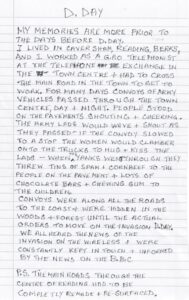 D. DAY
MY MEMORIES ARE MORE PRIOR TO
THE DAYS BEFORE D.DAY.
I LIVED IN CAVERSHAM, READING, BERKS,
AND I WORKED AS A G.P.O TELEPHONIST
AT THE TELEPHONE EXCHANGE IN
THE TOWN CENTRE + HAD TO CROSS
THE MAIN ROAD IN THE TOWN TO GET TO
WORK. FOR MANY DAYS CONVOYS OF ARMY
VEHICLES PASSED THROUGH THE TOWN
CENTRE, DAY + NIGHT. PEOPLE STOOD
ON THE PAVEMENTS SHOUTING + CHEERING.
THE ARMY LADS WOULD WAVE + SHOUT AS
THEY PASSED. IF THE CONVOY SLOWED
TO A STOP THE WOMEN WOULD CLAMBER
ONTO THE TRUCKS TO HUG + KISS THE
LADS. WHEN YANKS WENT THROUGH THEY
THREW TINS OF SPAM + CORNBEEF TO THE
PEOPLE ON THE PAVEMENT + LOTS OF
CHOCOLATE BARS + CHEWING GUM TO
THE CHILDREN.
CONVOYS WERE ALONG ALL THE ROADS
TO THE COAST + WERE HIDDEN IN THE
WOODS + FOREST UNTIL THE ACTUAL
ORDERS TO MOVE ON THE INVASION D.DAY.
WE ALL HEARD THE NEWS OF THE
INVASION ON THE WIRELESS + WERE
CONSTANTLY KEPT IN TOUCH + INFORMED
BY THE NEWS ON THE B.B.C.
P.S. THE MAIN ROADS THROUGH THE
CENTRE OF READING HAD TO BE
COMPLETELY REMADE + RE-SURFACED.